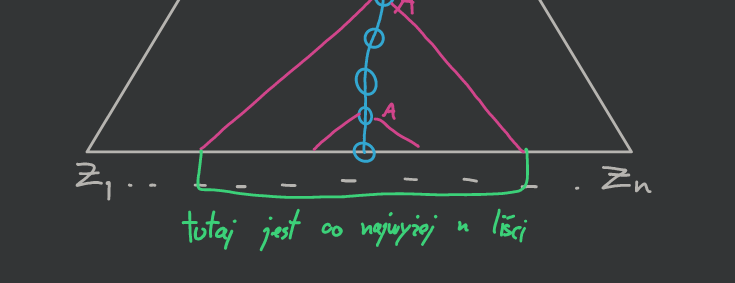 A
A
Z₁ .. - - - - - - - . Zₙ
tutaj jest co najwyżej n liści